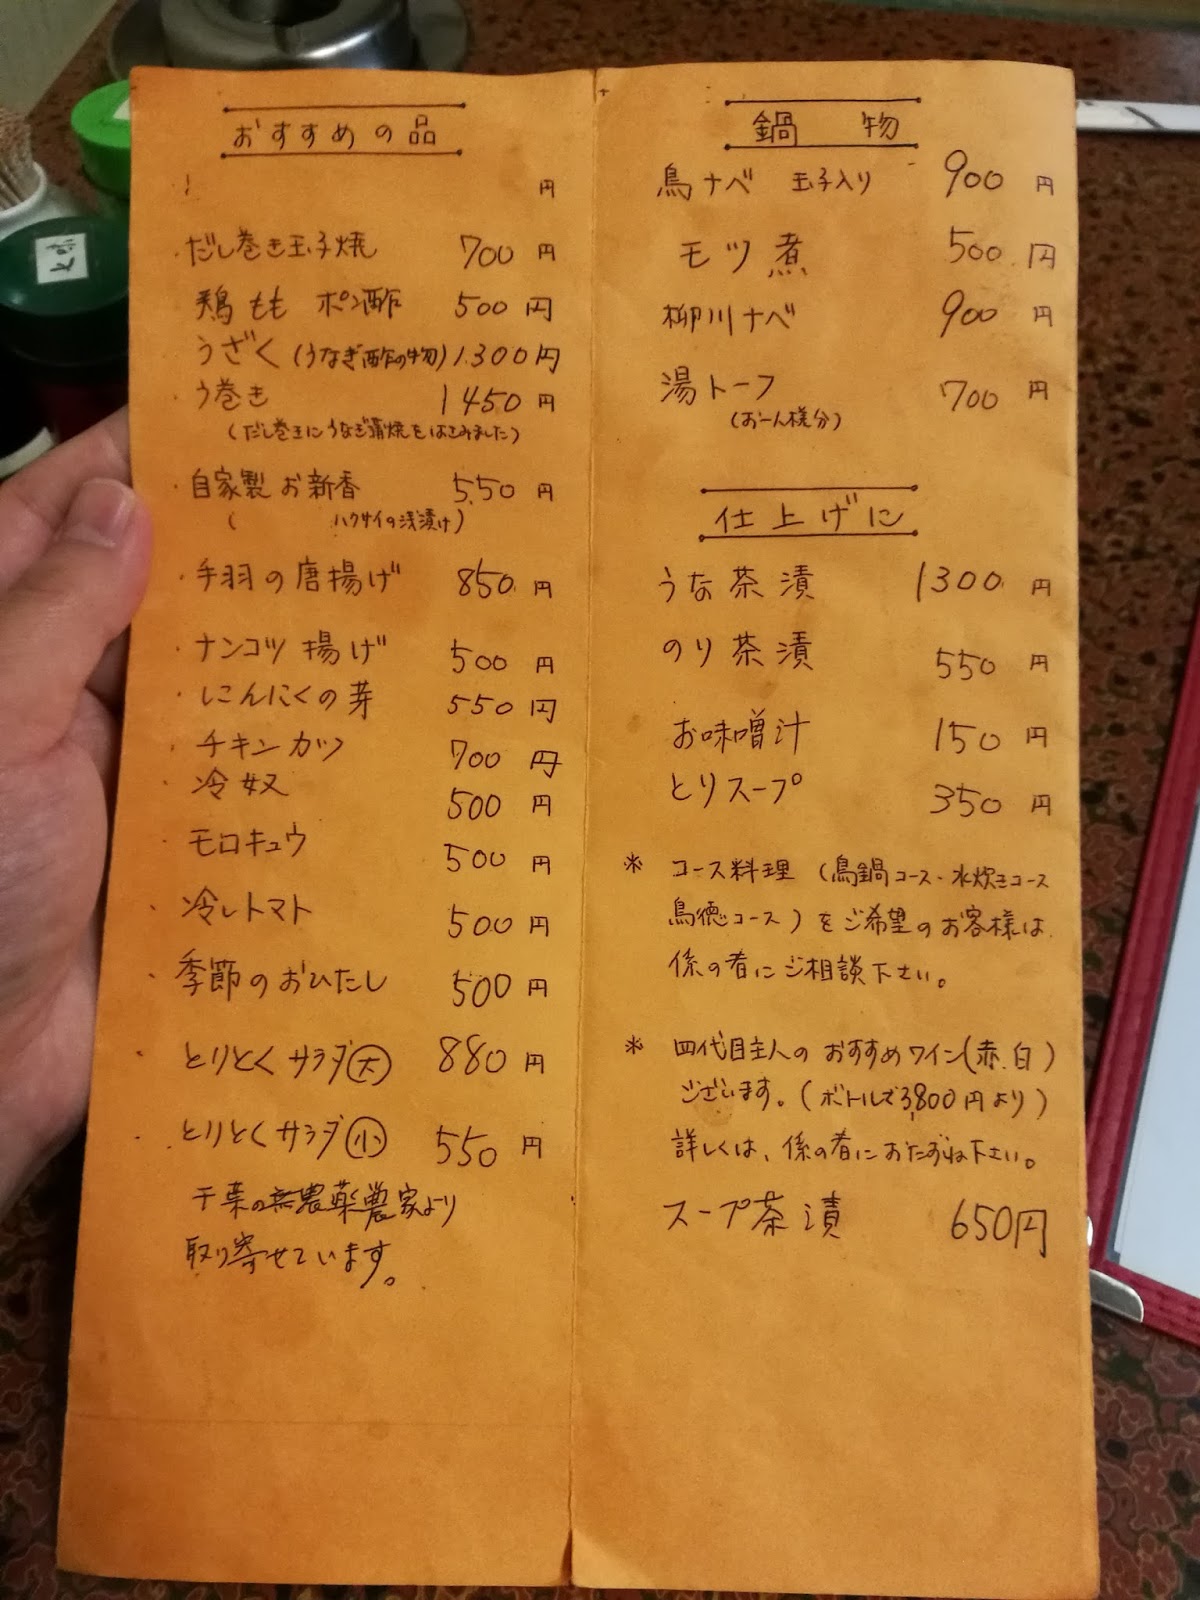 おすすめの品
円
・だし巻き玉子焼 700円
鶏もも ポン酢 500円
・うざく(うなぎ酢の物) 1.300円
・う巻き 1450円
(だし巻玉にうなぎ蒲焼をはさみました)
・自家製お新香 550円
( ハクサイの浅漬け)
・手羽の唐揚げ 850円
・ナンコツ揚げ 500円
・にんにくの芽 550円
・チキンカツ 700円
・冷奴 500円
・モロキュウ 500円
・冷しトマト 500円
・季節のおひたし 500円
・とりとくサラダ大 880円
・とりとくサラダ小 550円
千葉の無農薬農家より
取り寄せています。
鍋 物
鳥ナベ 玉子入り 900円
モツ煮 500円
柳川ナベ 900円
湯トーフ 700円
(お一人様分)
仕上げに
うな茶漬 1300円
のり茶漬 550円
お味噌汁 150円
とりスープ 350円
* コース料理 (鳥鍋コース・水炊きコース
鳥徳コース)をご希望のお客様は
係の者にご相談下さい。
* 四代目主人のおすすめワイン(赤.白)
ございます。(ボトルで3,800円より)
詳しくは、係の者におたずね下さい。
スープ茶漬 650円